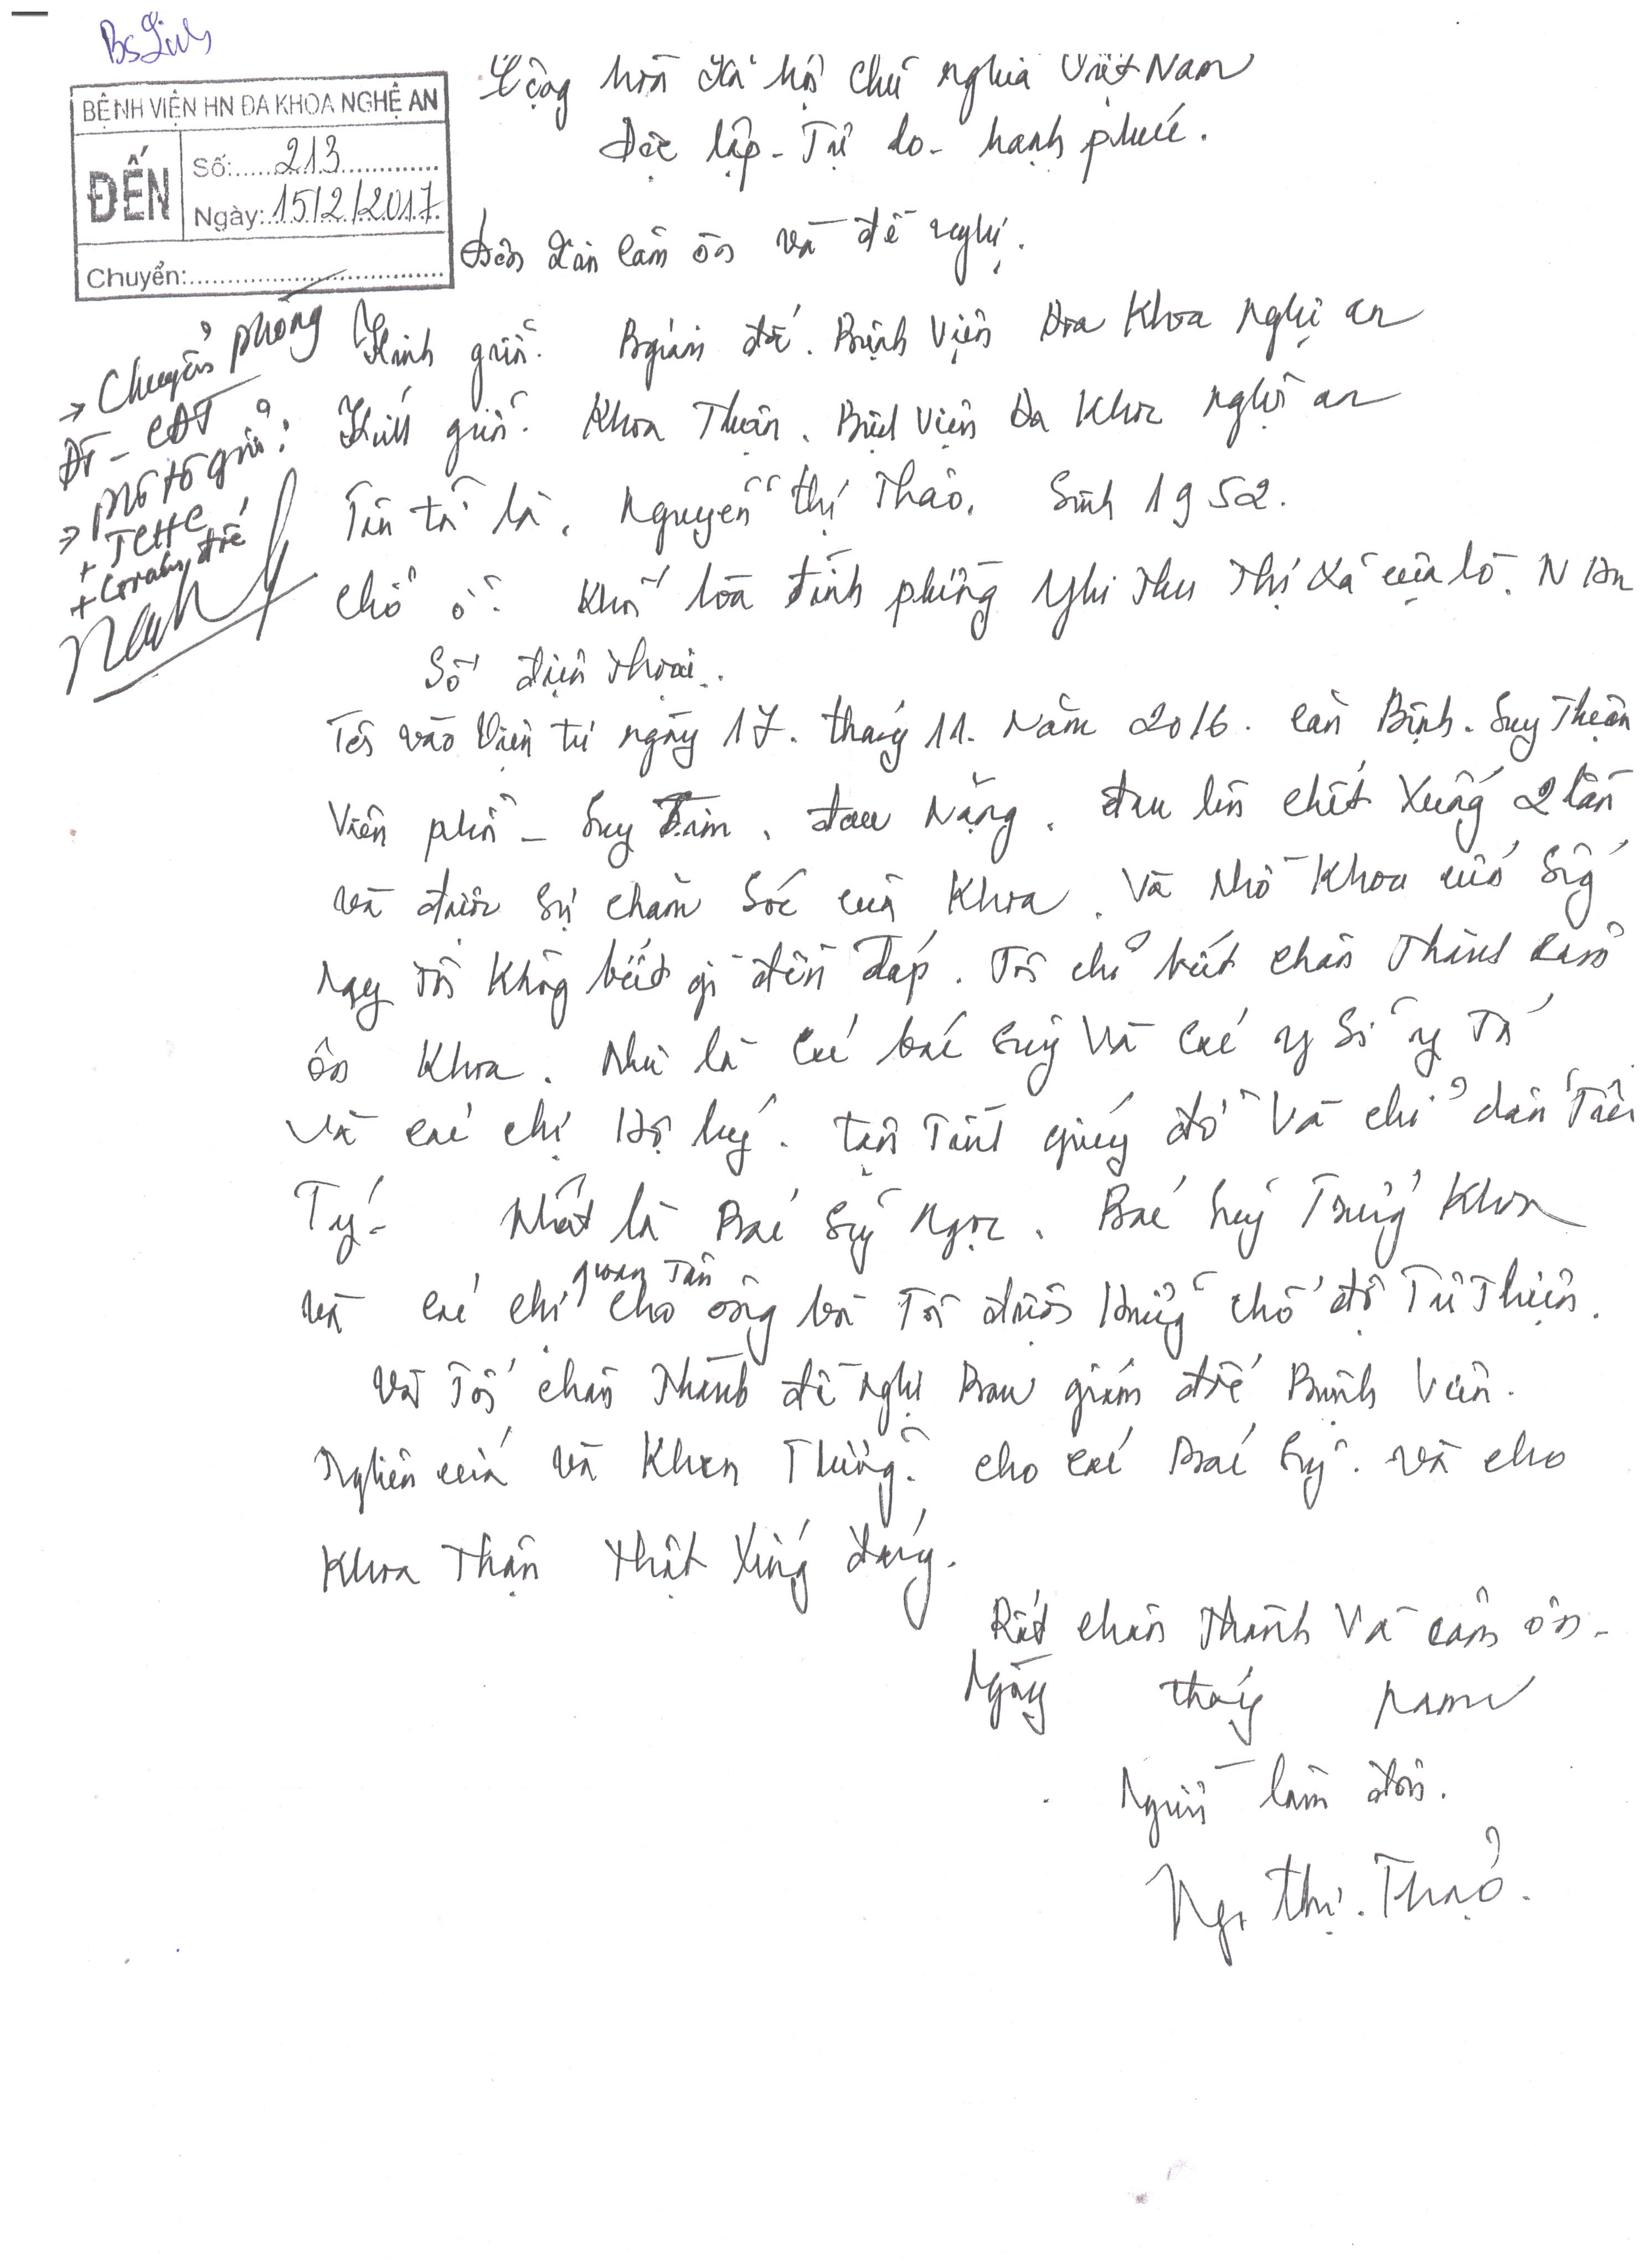 Bs Linh
BỆNH VIỆN HN ĐA KHOA NGHỆ AN
ĐẾN
Số: 213
Ngày: 15/2/2017
Chuyển:
Cộng hòa xã hội chủ nghĩa Việt Nam
Độc lập - Tự do - hạnh phúc.
Đơn xin cảm ơn và đề nghị.
→ Chuyển phòng
ĐT - CĐT
→ mô tô giấy:
+ TCHC
+
Kính gửi: Bgiám đốc. Bệnh Viện Đa Khoa Nghệ an
Kính gửi: Khoa Thận. Bệnh Viện Đa Khoa nghệ an
Tên tôi là, Nguyễn thị Thảo, Sinh 1952.
Chỗ ở: Khối hòa đình phường Nghi Thu Thị xã cửa lò. N An
Số điện thoại..
Tôi vào Viện từ ngày 17. tháng 11. Năm 2016. căn Bệnh. Suy Thận
Viêm phổi - Suy Tim. đau Nặng. đau lên chết xuống 2 lần
và được sự chăm sóc của Khoa. Và Nhờ Khoa cứu sống
Nay tôi không biết gì đền đáp. Tôi chỉ biết chân Thành cảm
ơn Khoa. Như là các bác sỹ Và các y sỉ y Tá
và các chị Hộ lý. tận Tình giúy đỡ Và chỉ dẫn Tân
Tý. Nhất là Bác Sỹ Ngọc. Bác Sỹ Trưởng Khoa
và các chị quan Tâm cho ông bà Tôi được Hưởng chế độ Từ Thiện.
Vậy Tôi chân Thành đề nghị Ban giám đốc Bệnh Viện.
Nghiên cứu và Khen Thưởng. cho các Bác Sỹ. và cho
Khoa Thận thật xứng đáng.
Rất chân Thành Và cảm ơn.
Ngày tháng năm
Người làm đơn.
Ng. Thị. Thảo.